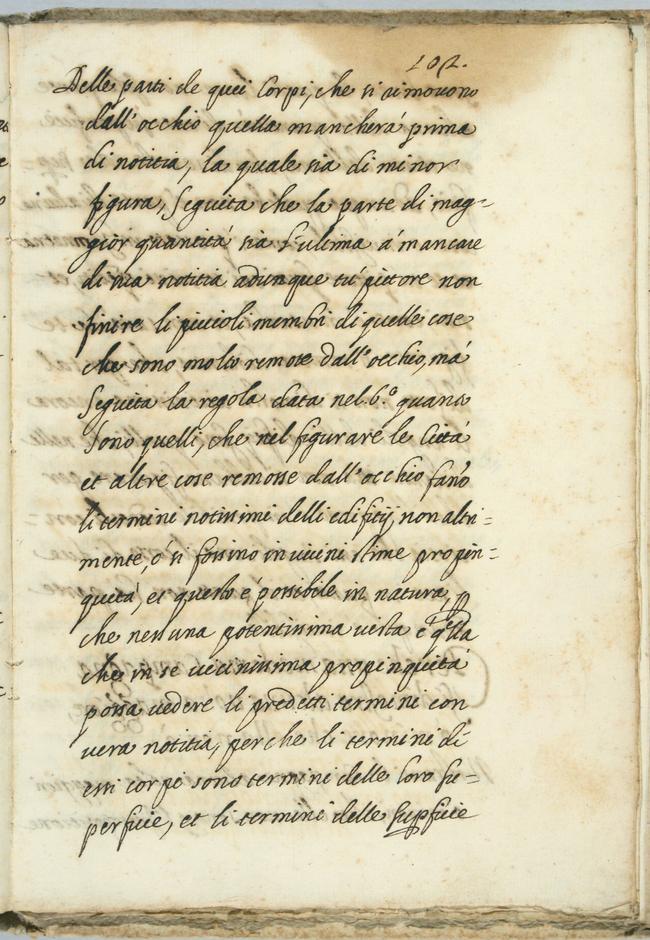 102.
Delle parti de quei Corpi, che si rimovono
dall'occhio quella mancherà prima
di notitia, la quale sia di minor
figura, Seguita che la parte di mag=
gior quantità sia l'ultima à mancare
di sua notitia adunque tù pittore non
finire li piccioli membri di quelle cose
che sono molto remote dall'occhio, mà
Seguita la regola data nel 6.º quanti
Sono quelli, che nel figurare le Città
et altre cose remosse dall'occhio fano
li termini notissimi delli edifitij, non altri=
mente, ò si fossino in vicini sime propin=
quità, et questo è possibile in natura,
che nessuna potentissima vista è qlla
che in se vicinissima propinquità
possa vedere li predetti termini con
vera notitia, perche li termini di
essi corpi sono termini delle loro su=
perficie, et li termini delle supficie